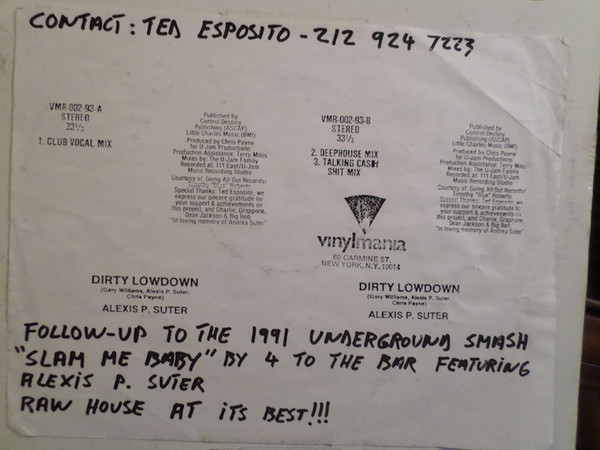 CONTACT: TED ESPOSITO - 212 924 7223
VMR-002-93-A
STEREO
33⅓
1. CLUB VOCAL MIX
Published by
Control Destiny
Publishing (ASCAP)
Little Charles Music (BMI)
Produced by Chris Payne
for U-Jam Productions
Production Assistance: Terry Miles
Mixes by: The U-Jam Family
Recorded at: 111 East/U-Jam
Music Recording Studio
Courtesy of: Going All Out Records!
Timothy "Blue" Roberts
Special Thanks: Ted Esposito, we
express our sincere gratitude for
your support & achievements on
this project, and Charlie, Grappone,
Dean Jackson & Big Bob.
"In loving memory of Andrea Suter"
VMR-002-93-B
STEREO
33⅓
2. DEEPHOUSE MIX
3. TALKING CASH
SHIT MIX
Published by
Control Destiny
Publishing (ASCAP)
Little Charles Music (BMI)
Produced by Chris Payne
for U-Jam Productions
Production Assistance: Terry Miles
Mixes by: The U-Jam Family
Recorded at: 111 East/U-Jam
Music Recording Studio
Courtesy of: Going All Out Records!
Timothy "Blue" Roberts
Special Thanks: Ted Esposito, we
express our sincere gratitude for
your support & achievements on
this project, and Charlie, Grappone,
Dean Jackson & Big Bob.
"In loving memory of Andrea Suter"
vinylmania
60 CARMINE ST.
NEW YORK, N.Y. 10014
DIRTY LOWDOWN
(Gary Williams, Alexis P. Suter,
Chris Payne)
ALEXIS P. SUTER
DIRTY LOWDOWN
(Gary Williams, Alexis P. Suter,
Chris Payne)
ALEXIS P. SUTER
FOLLOW-UP TO THE 1991 UNDERGROUND SMASH
"SLAM ME BABY" BY 4 TO THE BAR FEATURING
ALEXIS P. SUTER
RAW HOUSE AT ITS BEST!!!